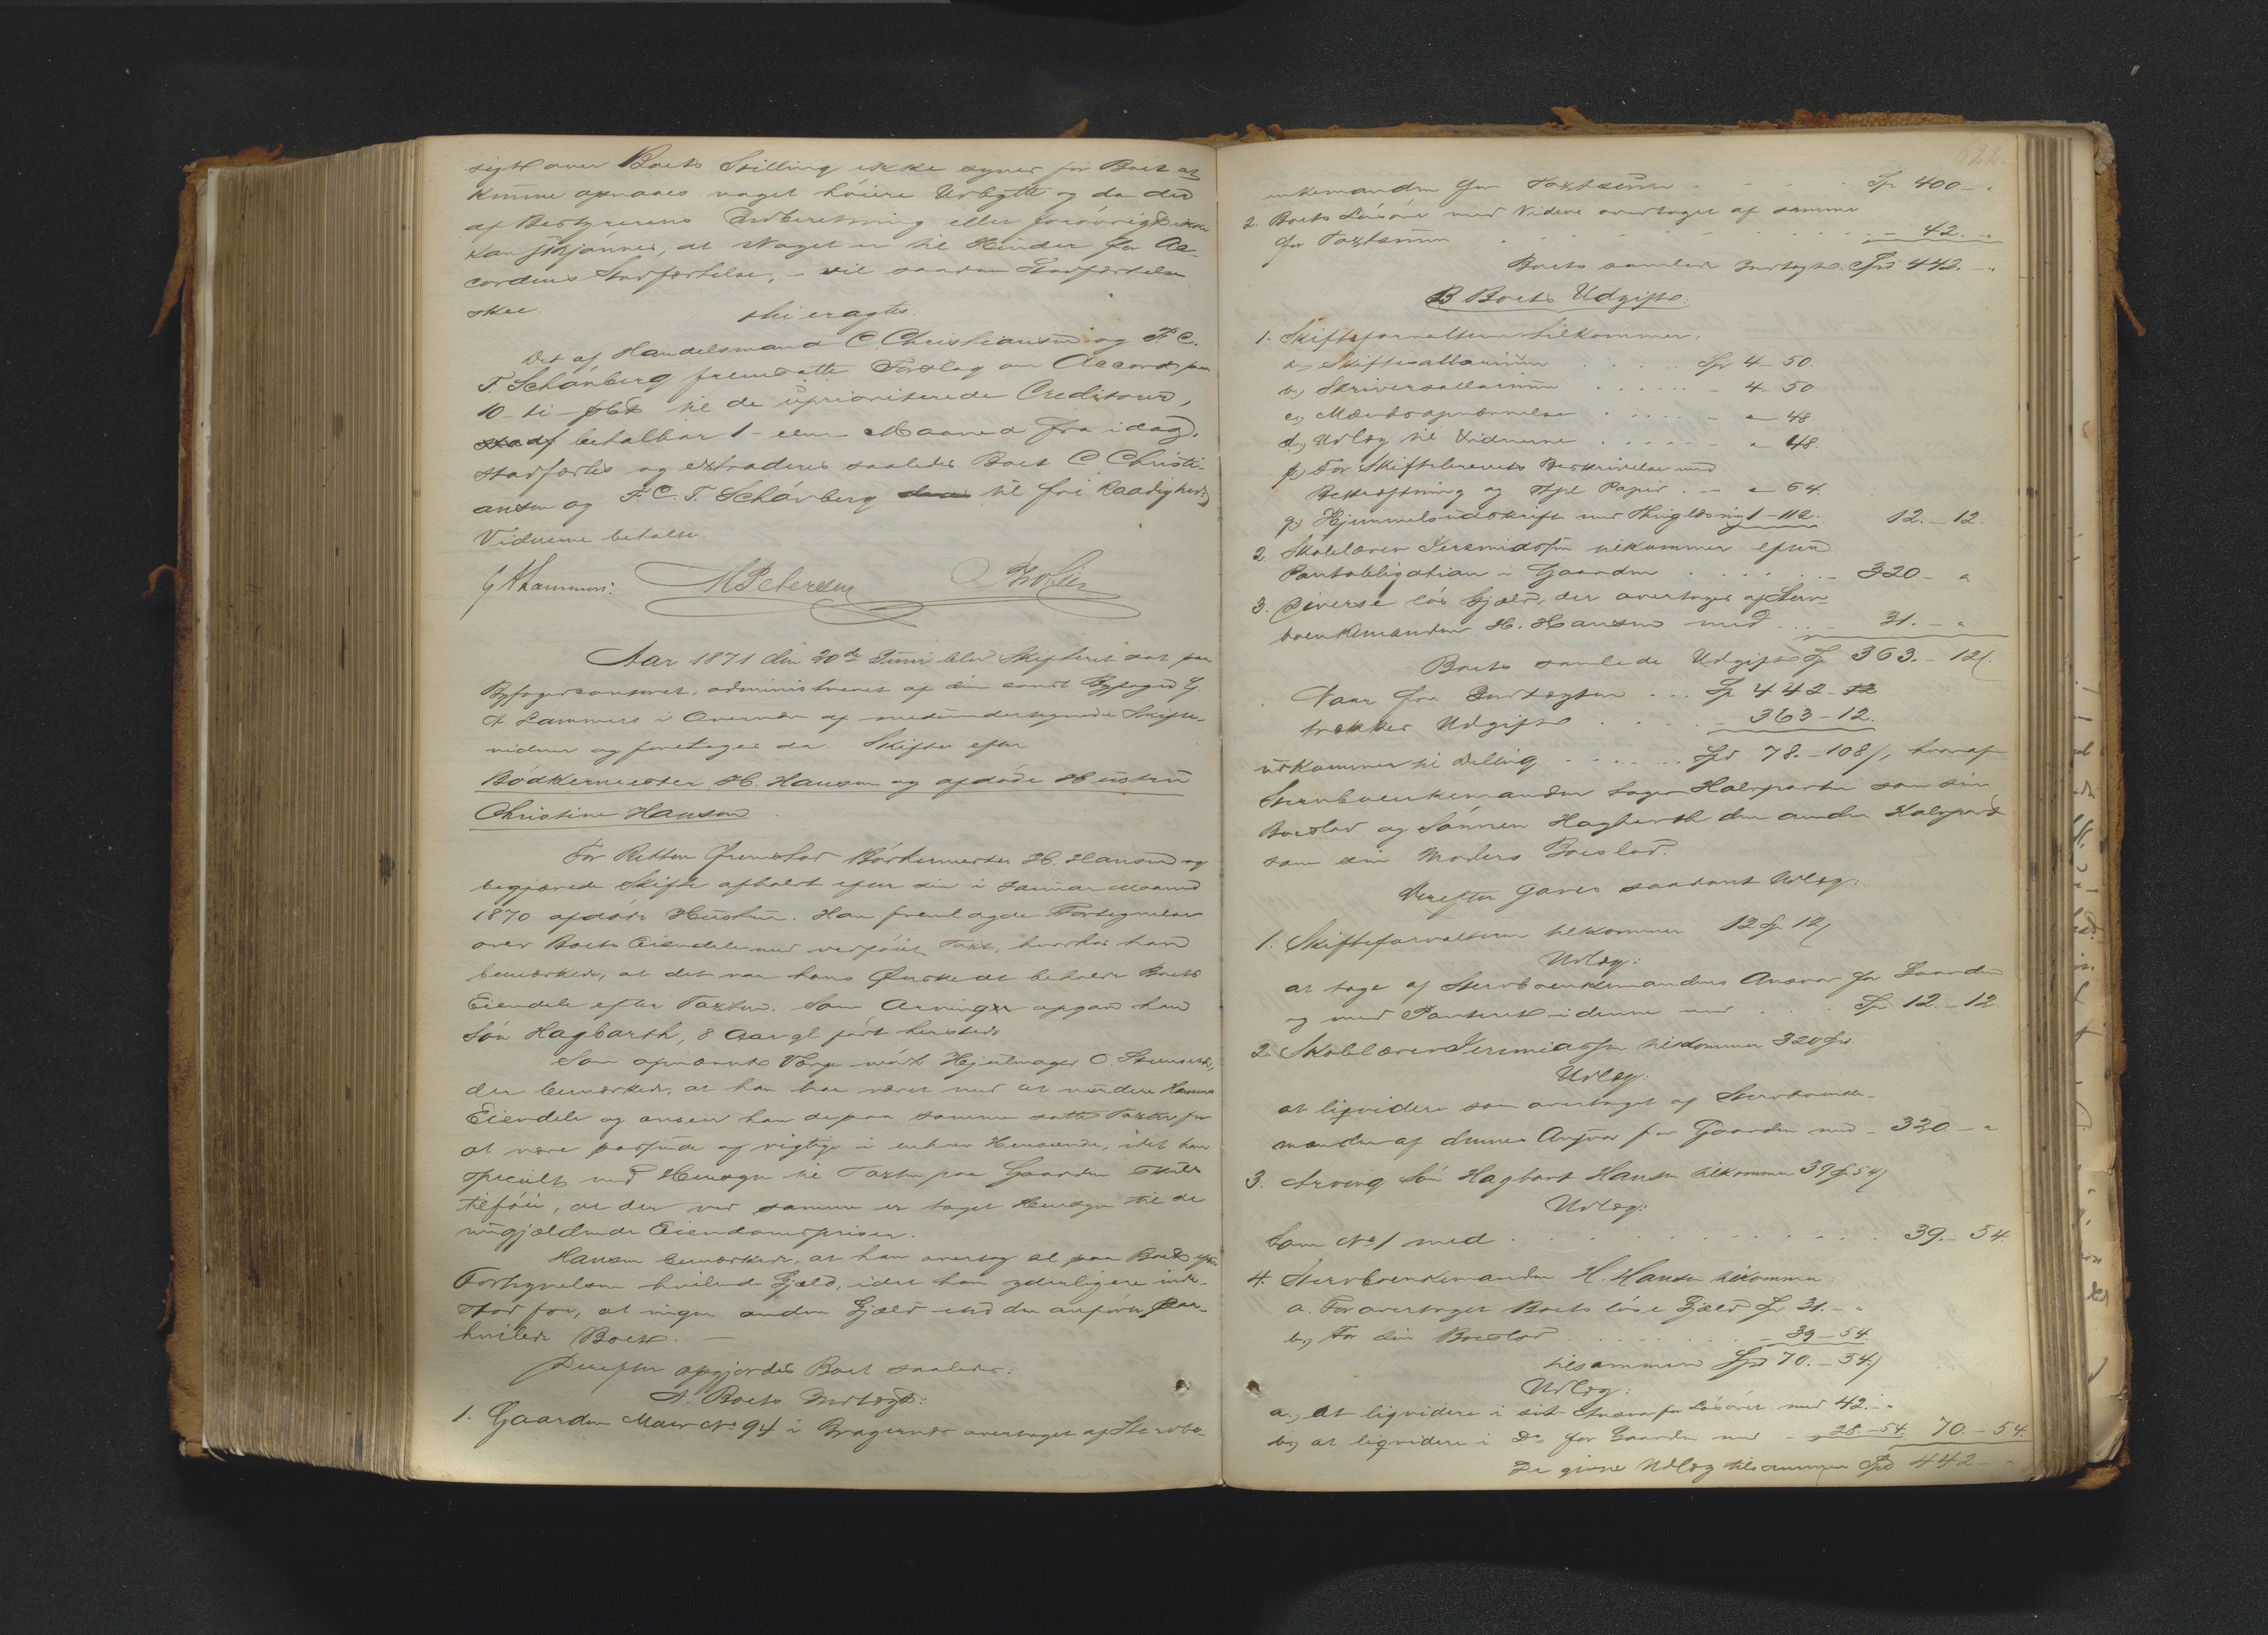 sigt over Boets Stilling ikke synes for Boet at
kunne opnaaes noget høiere Udbytte og da det
af Bestyrerens Indberetning eller forøvrigt ikke
kan skjønnes, at Noget er til Hinder for Ac-
cordens Stadfæstelse, – vil saadan Stadfæstelse
skee.
thi eragtes:
Det af Handelsmand C Christiansen og F. C.
T. Schönberg fremsatte Forslag om Accord paa
10 – ti – pCt til de uprioriterede Creditorer,
betalbar 1 – een Maaned fra idag,
stadfæstes og extraderes saaledes Boet C Christi-
ansen og F. C. T. Schönberg til fri Raadighed.
Vidnerne betalte.
G A Lammers: M Petersen
Aar 1871 den 20de Juni blev Skifteret sat paa
Byfogedcontoret, administreret af den const Byfoged G.
A. Lammers i Overvær af medundertegnede Skifte-
vidner og foretages da. Skifte efter
Bødkermester H. Hansen og afdøde Hustru
Christine Hansen.
For Retten fremstod Bødkermester H. Hansen og
begjærede Skifte afholdt efter sin i Januar Maaned
1870 afdøde Hustru. Han fremlagde Fortegnelse
over Boets Eiendele med vedføiet Taxt, hvorhos han
bemærkede, at det var hans Ønske at beholde Boets
Eiendele efter Taxten. Som Arving opgav han
Søn Hagbarth, 8 Aar gl født hersteds
Som opnævnt Værge mødte Hjulmager O.
der bemærkede, at han har været med at vurdere Hansens
Eiendele og anseer han de paa samme satte Taxter for
at være passende og rigtige i enhver Henseende, idet han
specielt med Hensyn til Taxten paa Gaarden skulde
tilføie, at der ved samme er taget Hensyn til de
nugjældende Eiendomspriser.
Hansen bemærkede, at han overtog al paa Boet efter
Fortegnelsen hvilende Gjæld, idet han yderligere inde-
stod for, at ingen anden Gjæld end den anførte paa-
hvilede Boet. –
Derefter opgjordes Boet saaledes:
A. Boets Indtægt:
1. Gaarden Matr No 94 i Bragernes overtaget af Stervbo-
622.
enkemanden for Taxtsum . . . Sp 400 – "
2. Boets Løsøre med Videre overtaget af samme
for Taxtsum . . . – 42. – "
Boets samlede Indtægt Spd 442. – "
B Boets Udgift:
1. Skifteforvalteren tilkommer:
a., Skiftesallarium . . . Sp 4 – 50.
b., Skriversallarium . . . – 4 – 50.
c., Mændsopnævnelse . . . – " – 48
d., Udlæg til Vidnerne . . . – " – 48.
f., For Skiftebrevets Beskrivelse med
Bekræftning og stpl Papir . – " – 64.
g., Hjemmelsudskrift med Thinglæsning 1 – 112. 12. – 12.
2. Skolelærer Jeremiassen tilkommer efter
Pantobligation i Gaarden . . . – 320 – "
3. Diverse løs Gjæld, der overtages af Sterv-
boenkemanden H. Hansen med . . – 31. – "
Boets samlede Udgift Sp 363. – 12/.
Naar fra Indtægten . . . Sp 442 –
trækkes Udgift . . . – 363 – 12.
udkommer til Deling . . . Spd 78. – 108/, hvoraf
Stervboenkemanden tager Halvparten som sin
Boeslod og Sønnen Hagbarth den anden Halvpart
som sin Moders Boeslod.
Derefter gaves saadant Udlæg:
1. Skifteforvalteren tilkommer 12 Sp 12/
Udlæg:
at tage af Stervboenkemandens Ansvar for Gaarden
og med Panteret i denne med . . . Sp 12. – 12
2. Skolelærer Jeremiassen tilkommer 320 Sp.
Udlæg:
at liqvidere som overtaget af Stervboenke-
manden af dennes Ansvar for Gaarden med – 320. – "
3. Arving Søn Hagbart Hansen tilkommer 39 Sp. 54/
Udlæg:
Som No 1 med . . . 39. – 54.
4. Stervboenkemanden H. Hansen tilkommer:
a. For overtaget Boets løse Gjæld Sp 31. – "
b., For sin Boeslod . . . – 39 – 54.
tilsammen Spd 70. – 54./
Udlæg:
a., at liqvidere i sit Ansvar for Løsøret med 42. – "
b., at liqvidere i Do for Gaarden med – 28. – 54. 70. – 54.
De givne Udlæg tilsammen Spd 442 – "